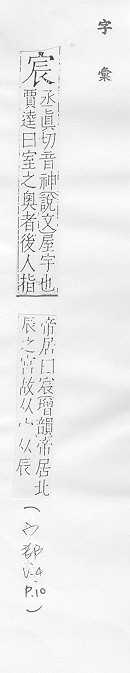 字彙
宸 丞眞切音神說文屋宇也
賈逵曰室之奧者後人指
帝居曰宸增韻帝居北
辰之宮故从宀从辰
V.4
P.10